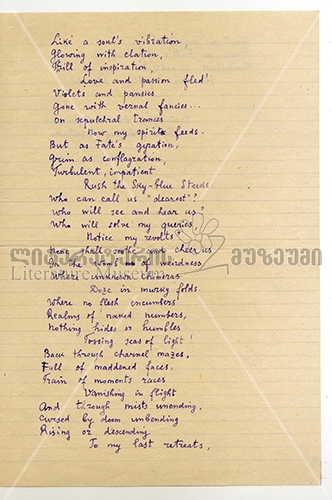 Like a soul's vibration,
Glowing with elation,
Bill of inspiration,
Love and passion fled!
Violets and pansies
Gone with vernal fancies...
On sepulchral trances
Now my spirit feeds.
But as Fate's gyration,
Grim as conflagration,
Turbulent, impatient
Rush the Sky-blue Steeds.
Who can call us "dearest"?
Who will see and hear us?
Who will solve my queries,
Notice my revolts?
None shall soothe and cheer us
In the womb of weirdness,
Where unknown chimeras
Doze in murky folds.
ლიტერატურის მუზეუმი
Literature Museum
Where no flesh encumbers
Realms of naked numbers,
Nothing hides or humbles
Tossing seas of light!
Back through charnel mazes,
Full of maddened faces,
Train of moments races
Vanishing in flight
And through mists unending,
Cursed by doom unbending
Rising or descending
To my last retreats,